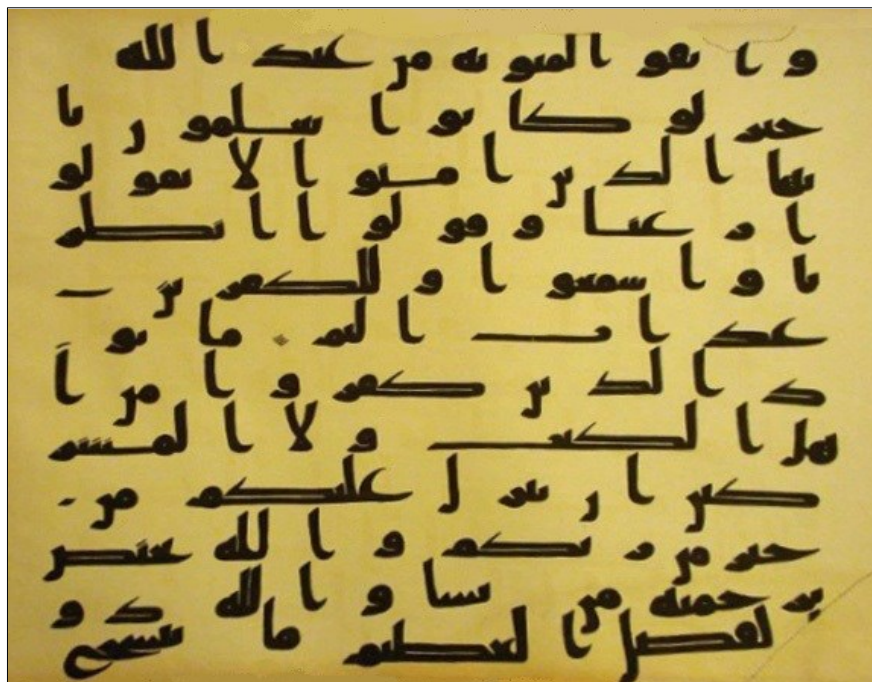 واتقوا لمثوبة من عند الله
خير لو كانوا يعلمون يا
يها الذين امنوا لا تقولو
ا رعنا وقولوا انظر
نا واسمعوا وللكفرين
عذاب اليم ما يو
د الذين كفروا من ا
هل الكتب ولا المشر
كين ان ينزل عليكم من
خير من ربكم والله يختص
برحمته من يشا والله ذو
لفضل العظيم ما ننسخ